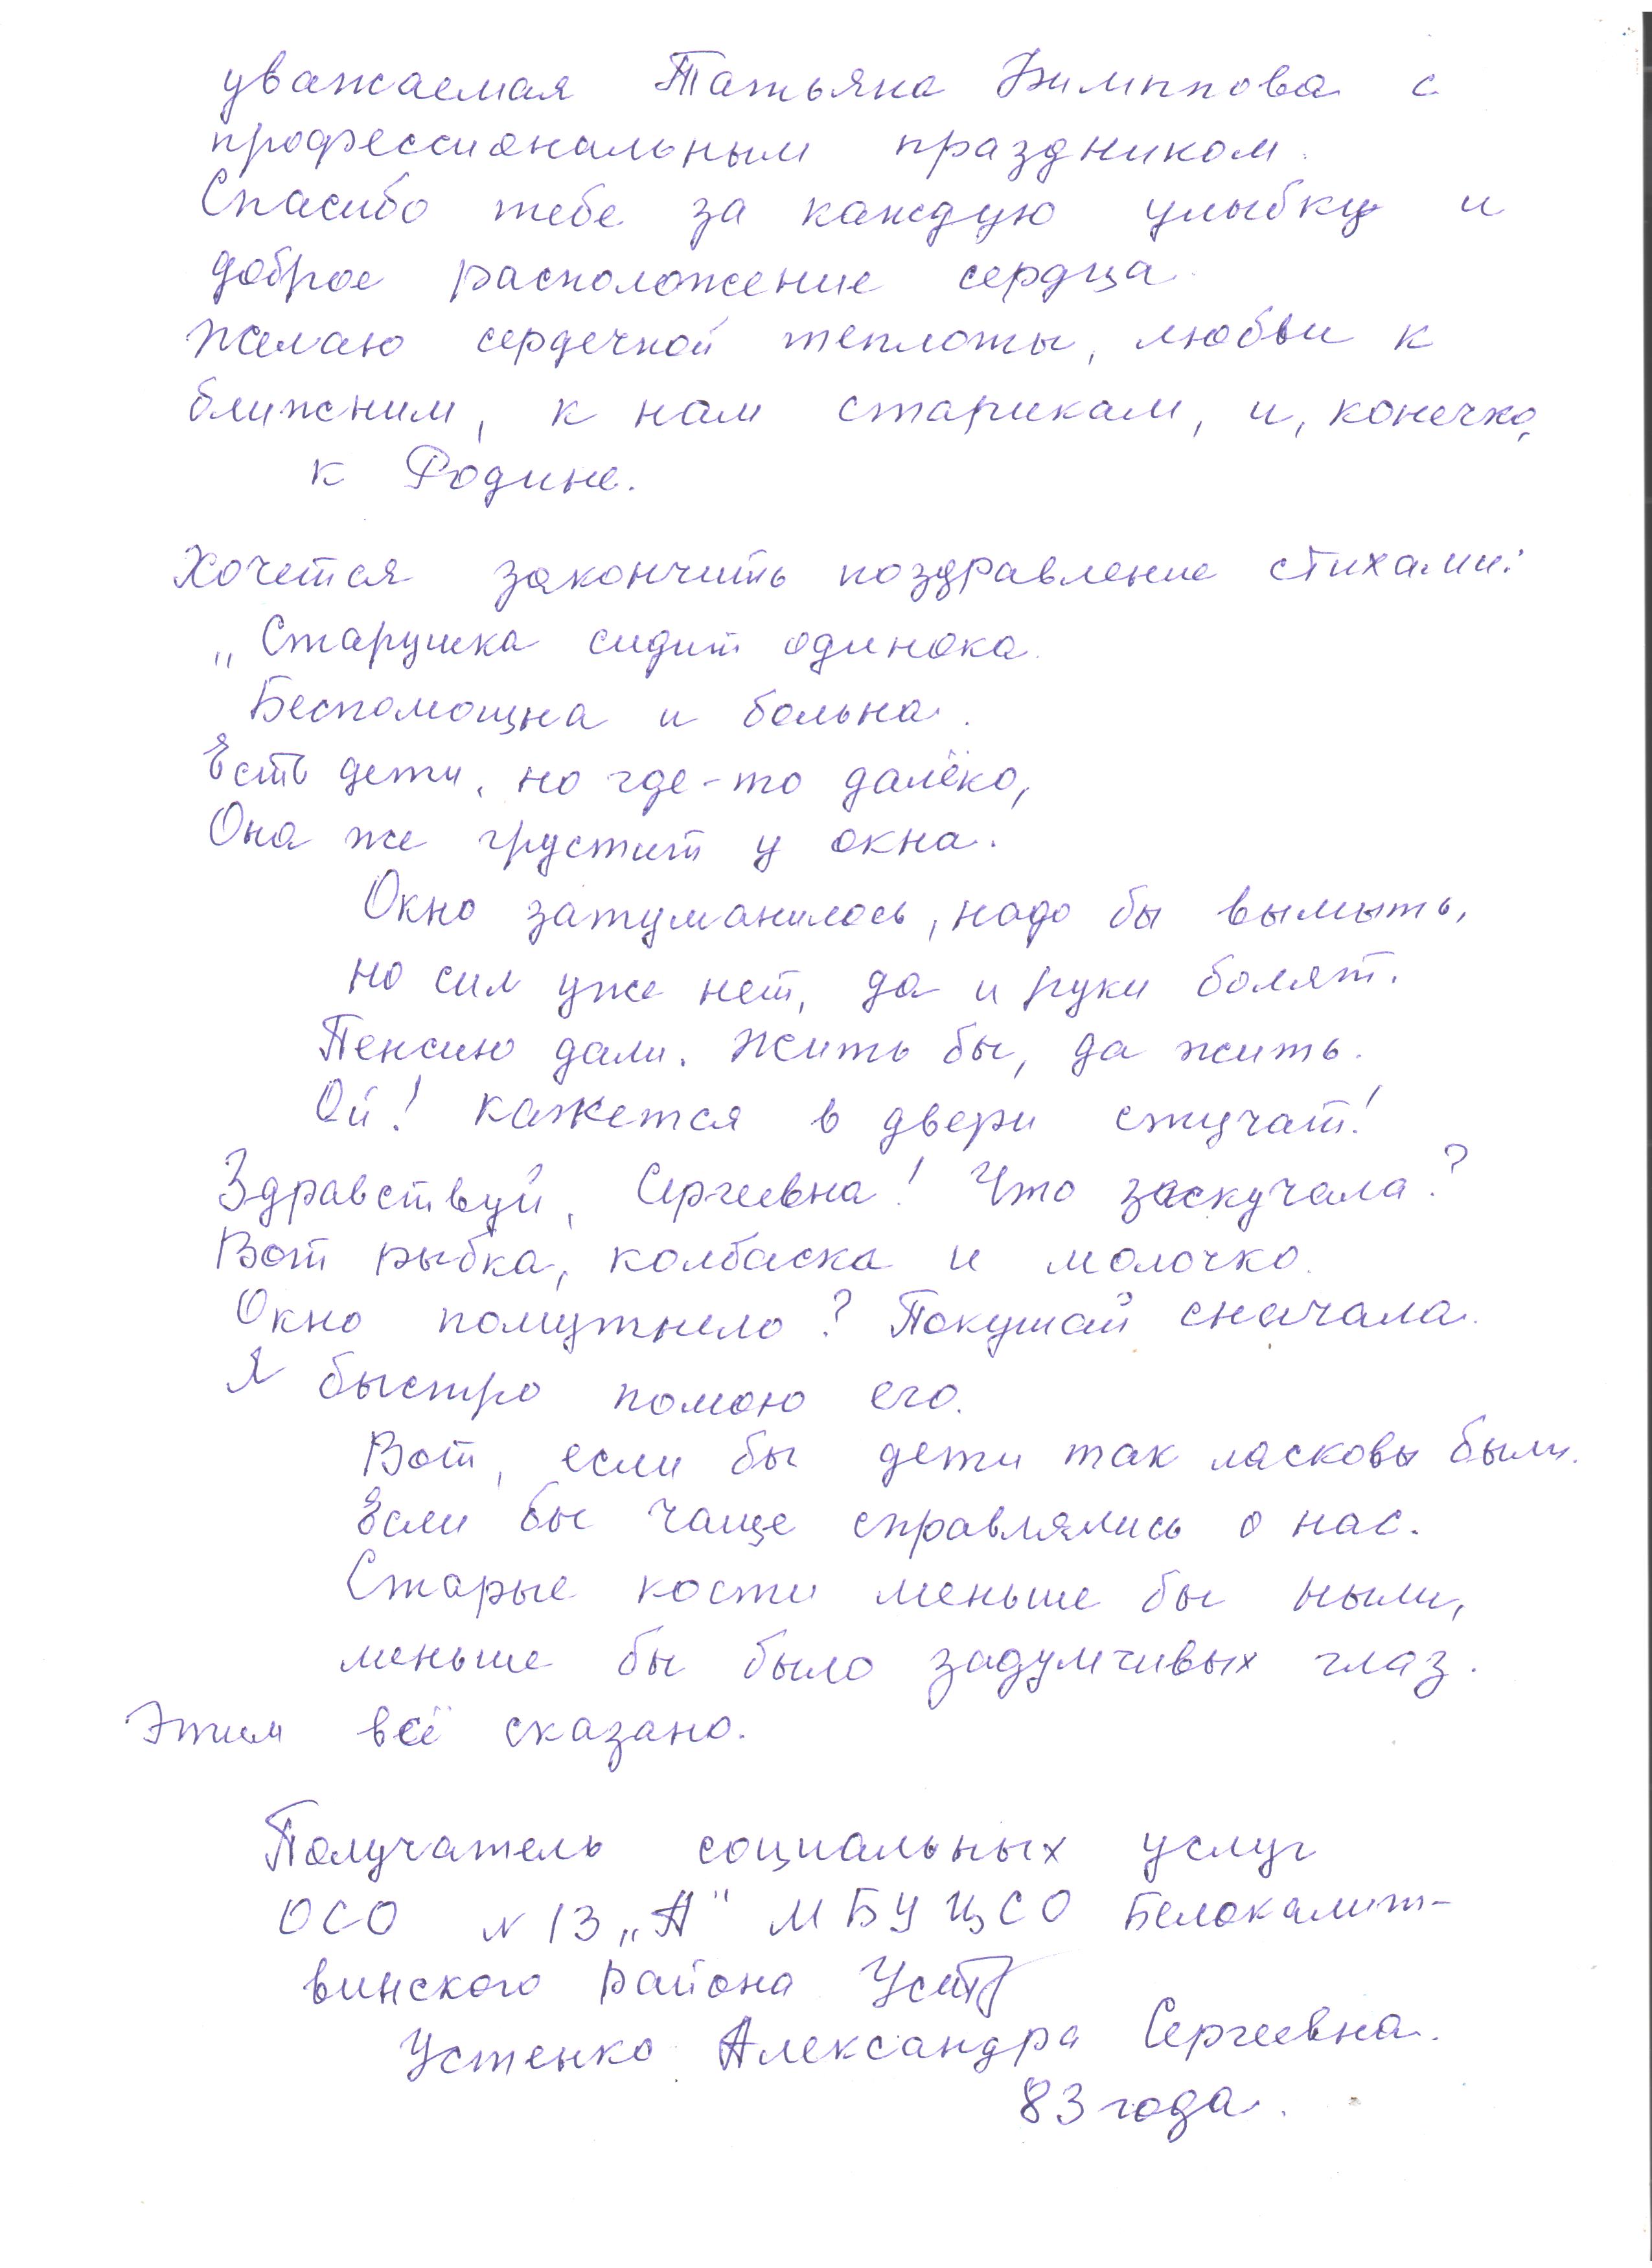 уважаемая Татьяна с
профессиональным праздником.
Спасибо тебе за каждую улыбку и
доброе расположение сердца.
Желаю сердечной теплоты, любви к
ближним, к нам старикам, и, конечно,
к Родине.
Хочется закончить поздравление стихами:
„Старушка сидит одинока.
Беспомощна и больна.
Есть дети, но где-то далёко,
Она же грустит у окна.
Окно затуманилось, надо бы вымыть,
но сил уже нет, да и руки болят.
Пенсию дали. Жить бы, да жить.
Ой! Кажется в двери стучат!
Здравствуй, Сергеевна! Что заскучала?
Вот рыбка, колбаска и молочко.
Окно помутнело? Покушай сначала.
Я быстро помою его.
Вот, если бы дети так ласковы были.
Если бы чаще справлялись о нас.
Старые кости меньше бы ныли,
меньше бы было задумчивых глаз.
Этим всё сказано.
Получатель социальных услуг
ОСО №13 „А" МБУ ЦСО Белокалит-
винского района
Устенко Александра Сергеевна.
83 года.